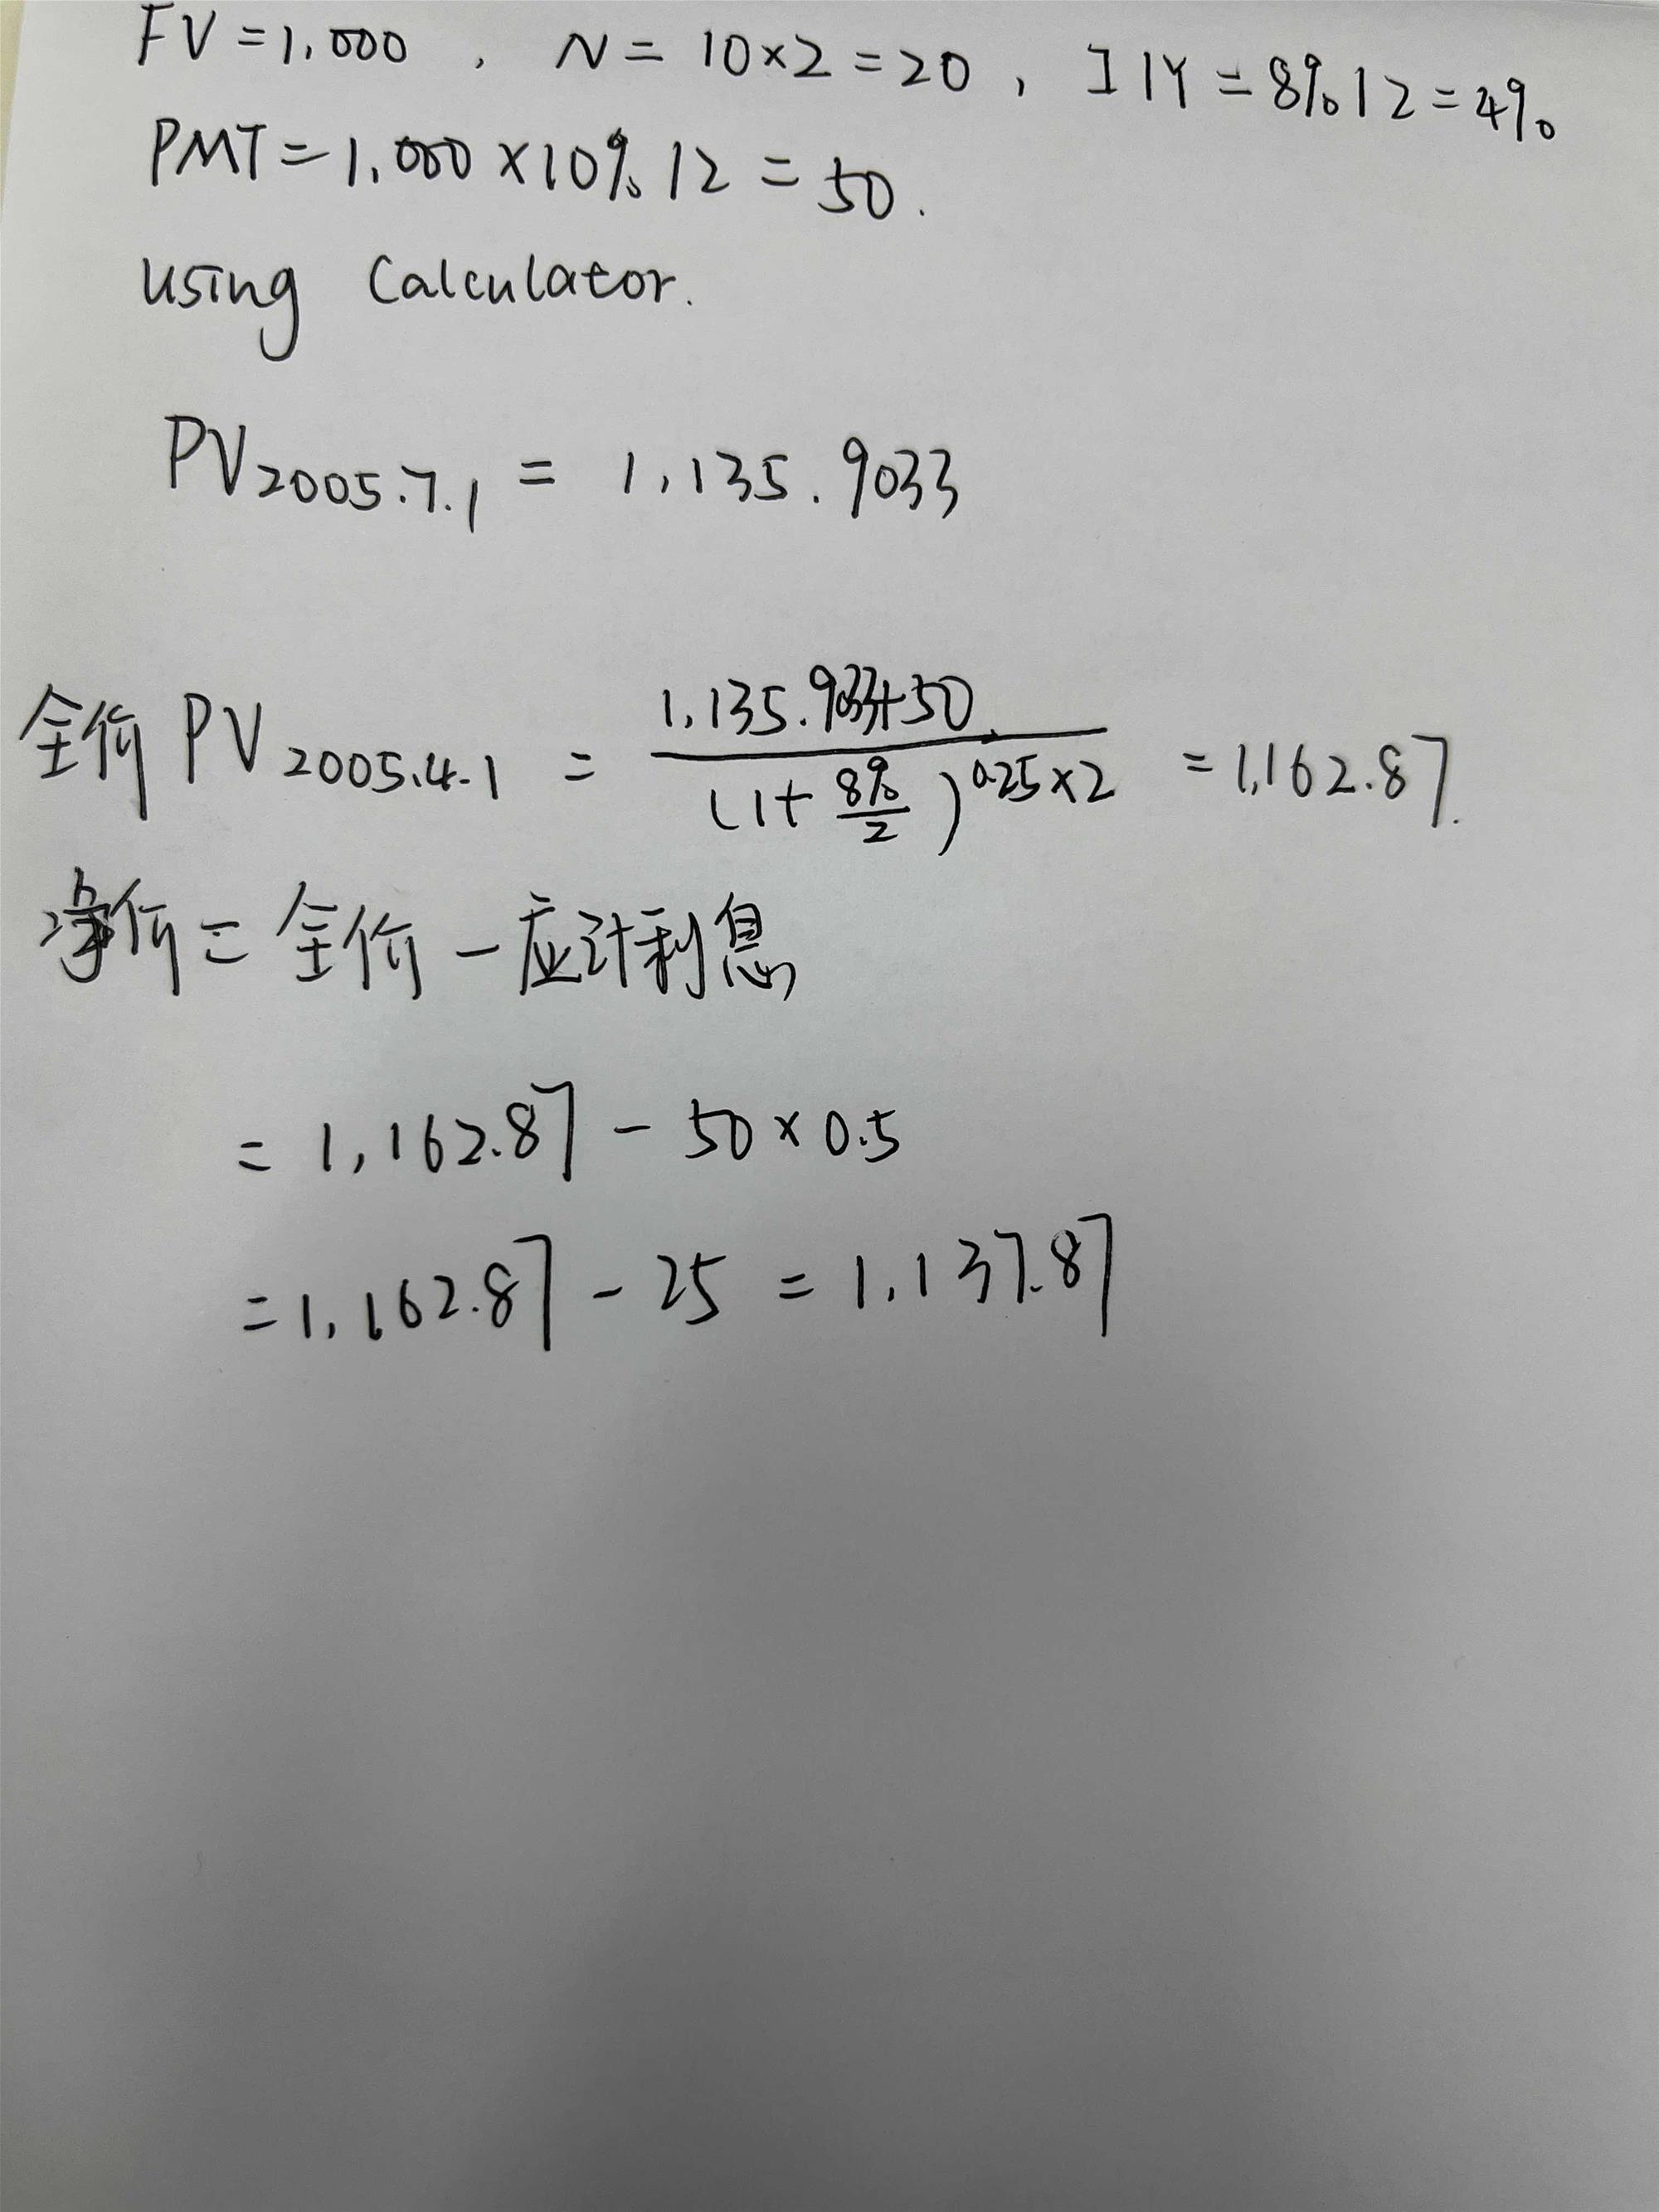 FV=1,000 , N=10×2=20, I/Y=8%/2=4%
PMT=1,000×10%/2=50.
using Calculator.
PV2005.7.1 = 1,135.9033
全价 PV2005.4.1 = 1,135.9033+50 / (1+8%/2)^0.25×2 = 1,162.87.
净价=全价-应计利息
=1,162.87-50×0.5
=1,162.87-25=1,137.87